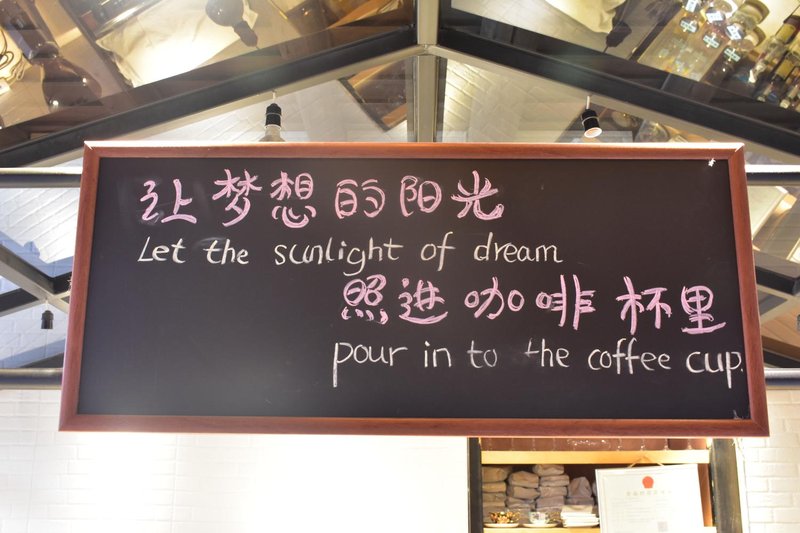 让梦想的阳光
Let the sunlight of dream
照进咖啡杯里
pour in to the coffee cup.